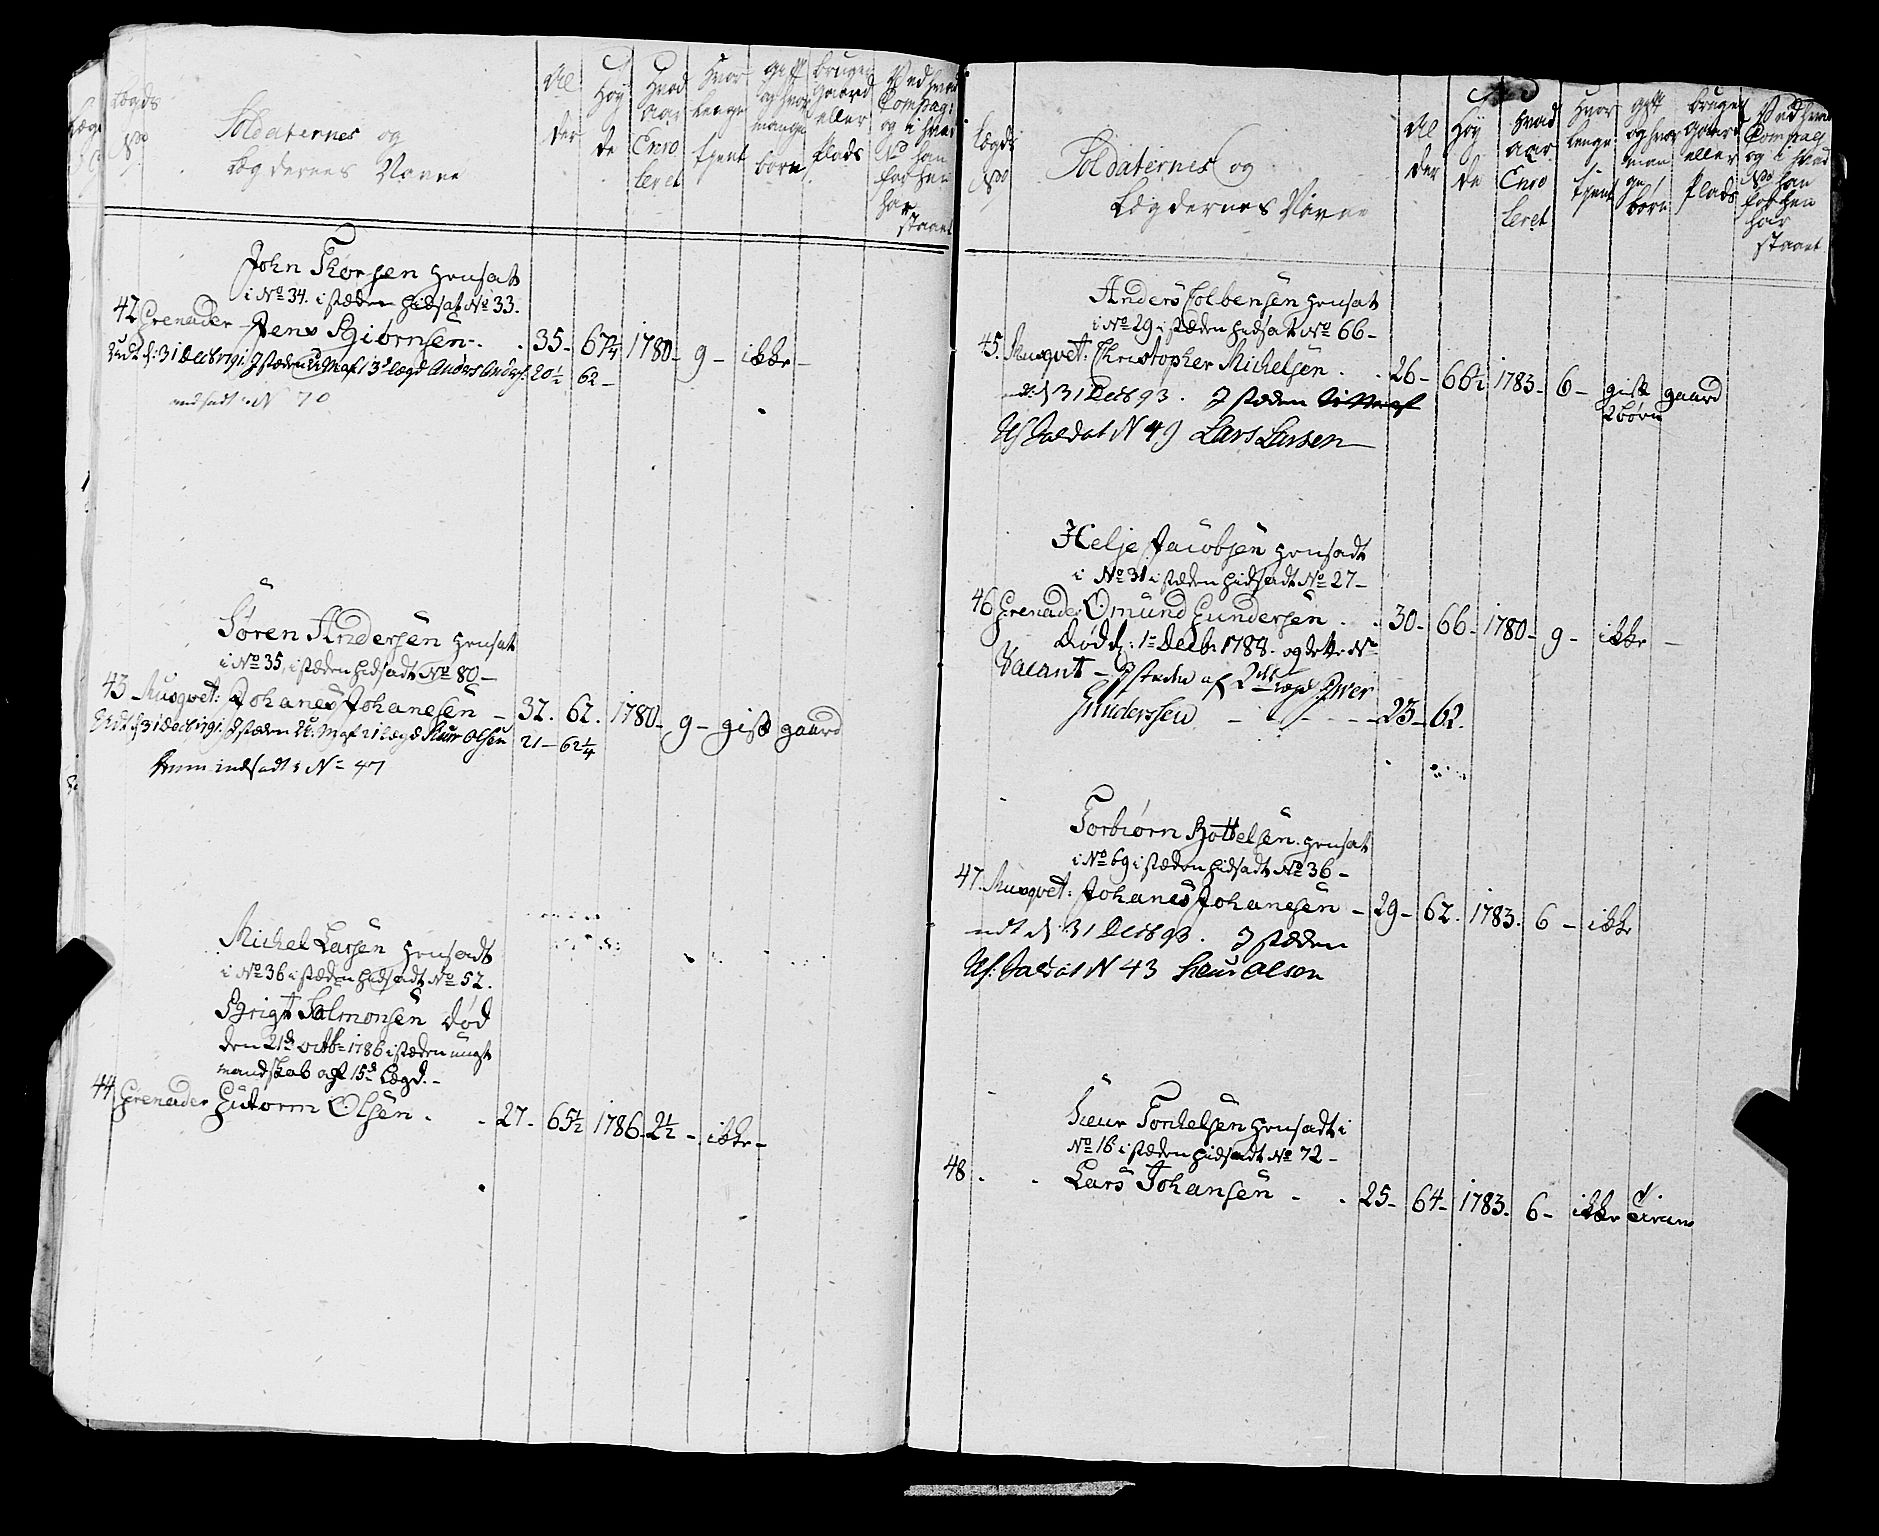 Lægds
No
Soldaternes og
Lægdernes Navne
Al
der
Høy
de
Hvad
Aar
Enro
leret
Hvor
lenge
tjent
gift
og hvor
mange
børn
bruger
gaard
eller
plads
Ved hvad
Compag:
og i hvad
No han
forhen
har
staaet
John Thorsen hensat
i No 34. i stæden hidsat No 33.
42 Grenader Jens Biørnsen - . 35 - 67¼ 1780 - 9 - ikke -
Udt d: 31 Decbr 1791. I stæden U: M af 13d lægd Anders Anders: 20½ 62 -
indsadt i N 70
Søren Andersen hensat
i No 35, i stæden hidsadt No 80 -
43 Musqvet: Johanes Johanesen - 32. 62. 1780 - 9 - gift gaard
Udt d 31 Decbr 1791. I stæden U: M af 21 lægd Siur Olsen 21 - 62¼
indsadt i No 47
Michel Larsen hensadt
i No 36 i stæden hidsadt No 52.
Brigt Salmonsen død
den 21d octb: 1786 i stæden ungt
mandskab af 15d Lægd. -
44 Grenader Gutorm Olsen . . 27 - 65½ 1786 - 2½ - ikke -
Lægds
No
Soldaternes og
Lægdernes Navne
Al
der
Høy
de
Hvad
Aar
Enro
leret
Hvor
lenge
tjent
gift
og hvor
man
ge
børn
bruger
Gaard
eller
plads
Ved hvad
Compag
og i hvad
No han
forhen
har
staaet
Anders Colbensen hensat
i No 29 i stæden hidsat No 66 -
45. Musqvet: Christopher Michelsen . . 26 - 66½ 1783 - 6 - gift gaard
2 børn
udt d 31 Decbr 93. I stæden
Af Soldat N 49 Lars Larsen
Helje Jacobsen hensadt
i No 31 i stæden hidsadt No 27 -
46 Grenader Omund Gundersen . . 30 - 66 - 1780 - 9 - ikke -
Død d: 1te Decbr 1788. og dette No
Vacant - I stæden af 2det lægd Iver
Gunderssen - - - - 23 - 62.
Torbiørn Bottelsen hensat
i No 69 i stæden hidsadt No 36 -
47. Musqvet: Johanes Johanesen - 29 - 62. 1783. 6 - ikke
udt d 31 Decbr 93. I stæden
Af: Soldat N 43 Siur Olsen
Siur Torkelsen hensadt i
No 16 i stæden hidsadt No 72 -
48 . . Lars Johansen . . 25 - 64 - 1783. 6 - ikke